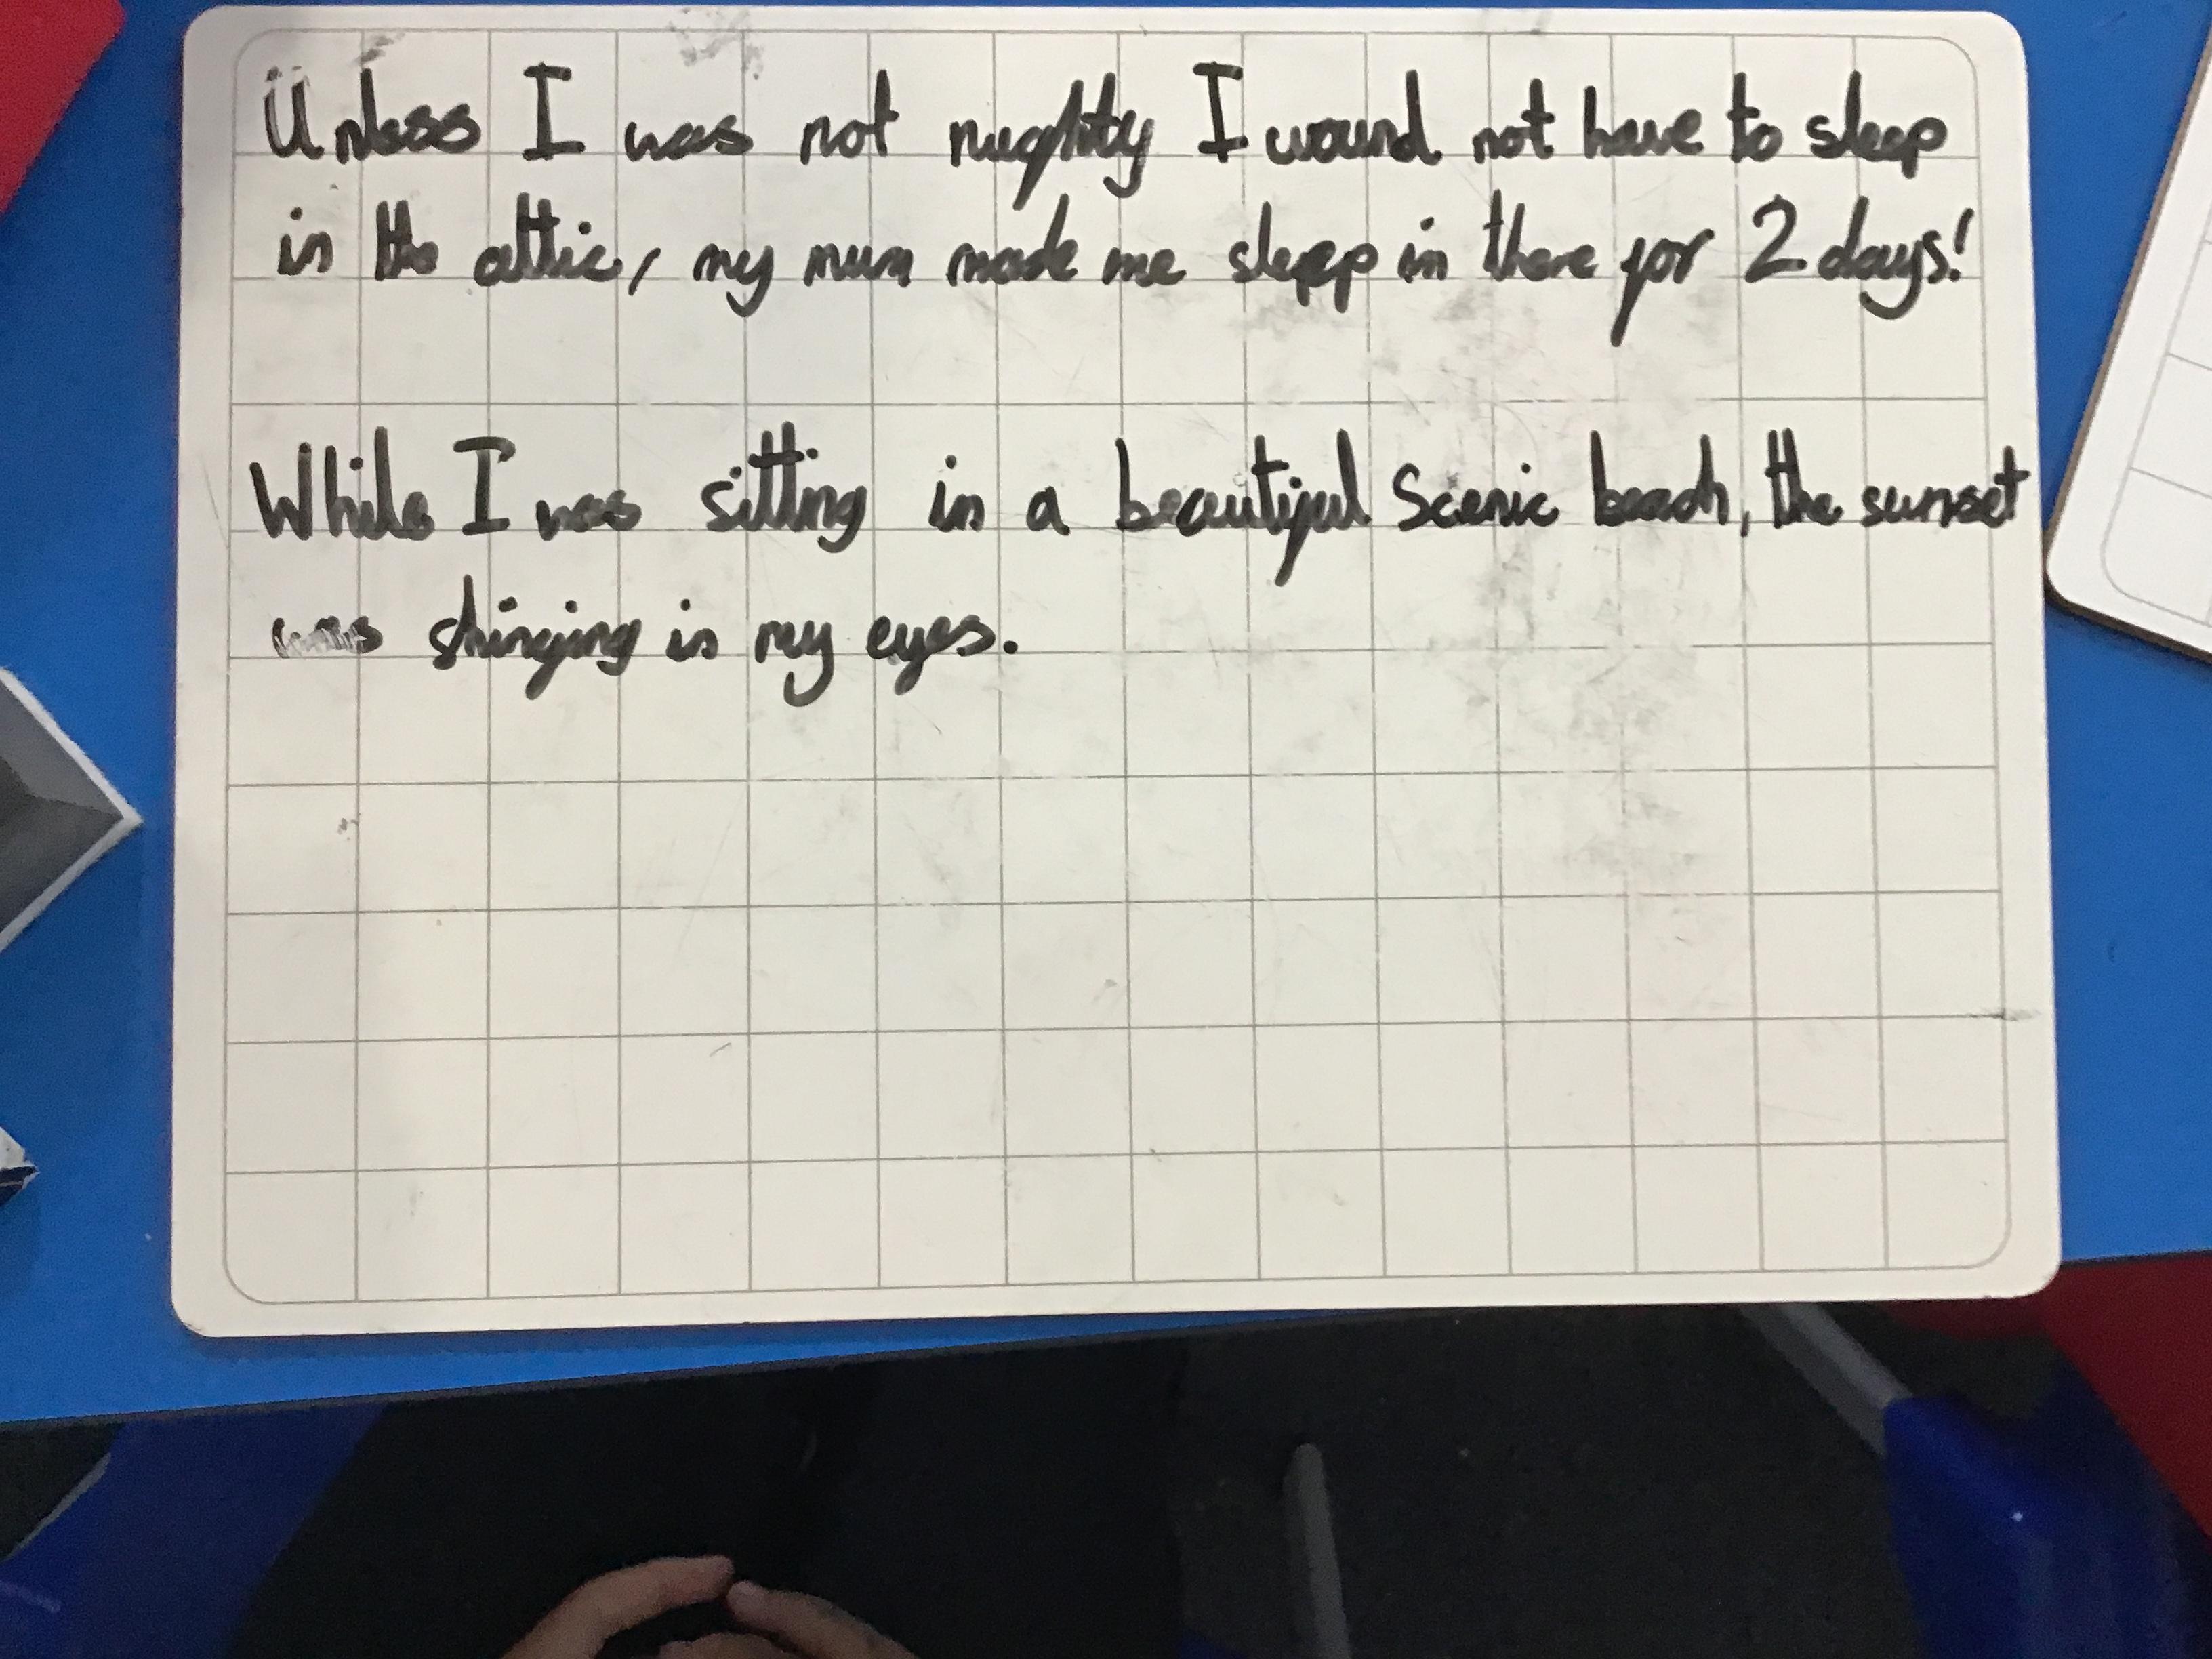 Unless I was not nughty I wound not have to sleep
in the attic, my mum made me sleep in there for 2 days!
While I was sitting in a beautiful Scenic beach, the sunset
was shinging in my eyes.